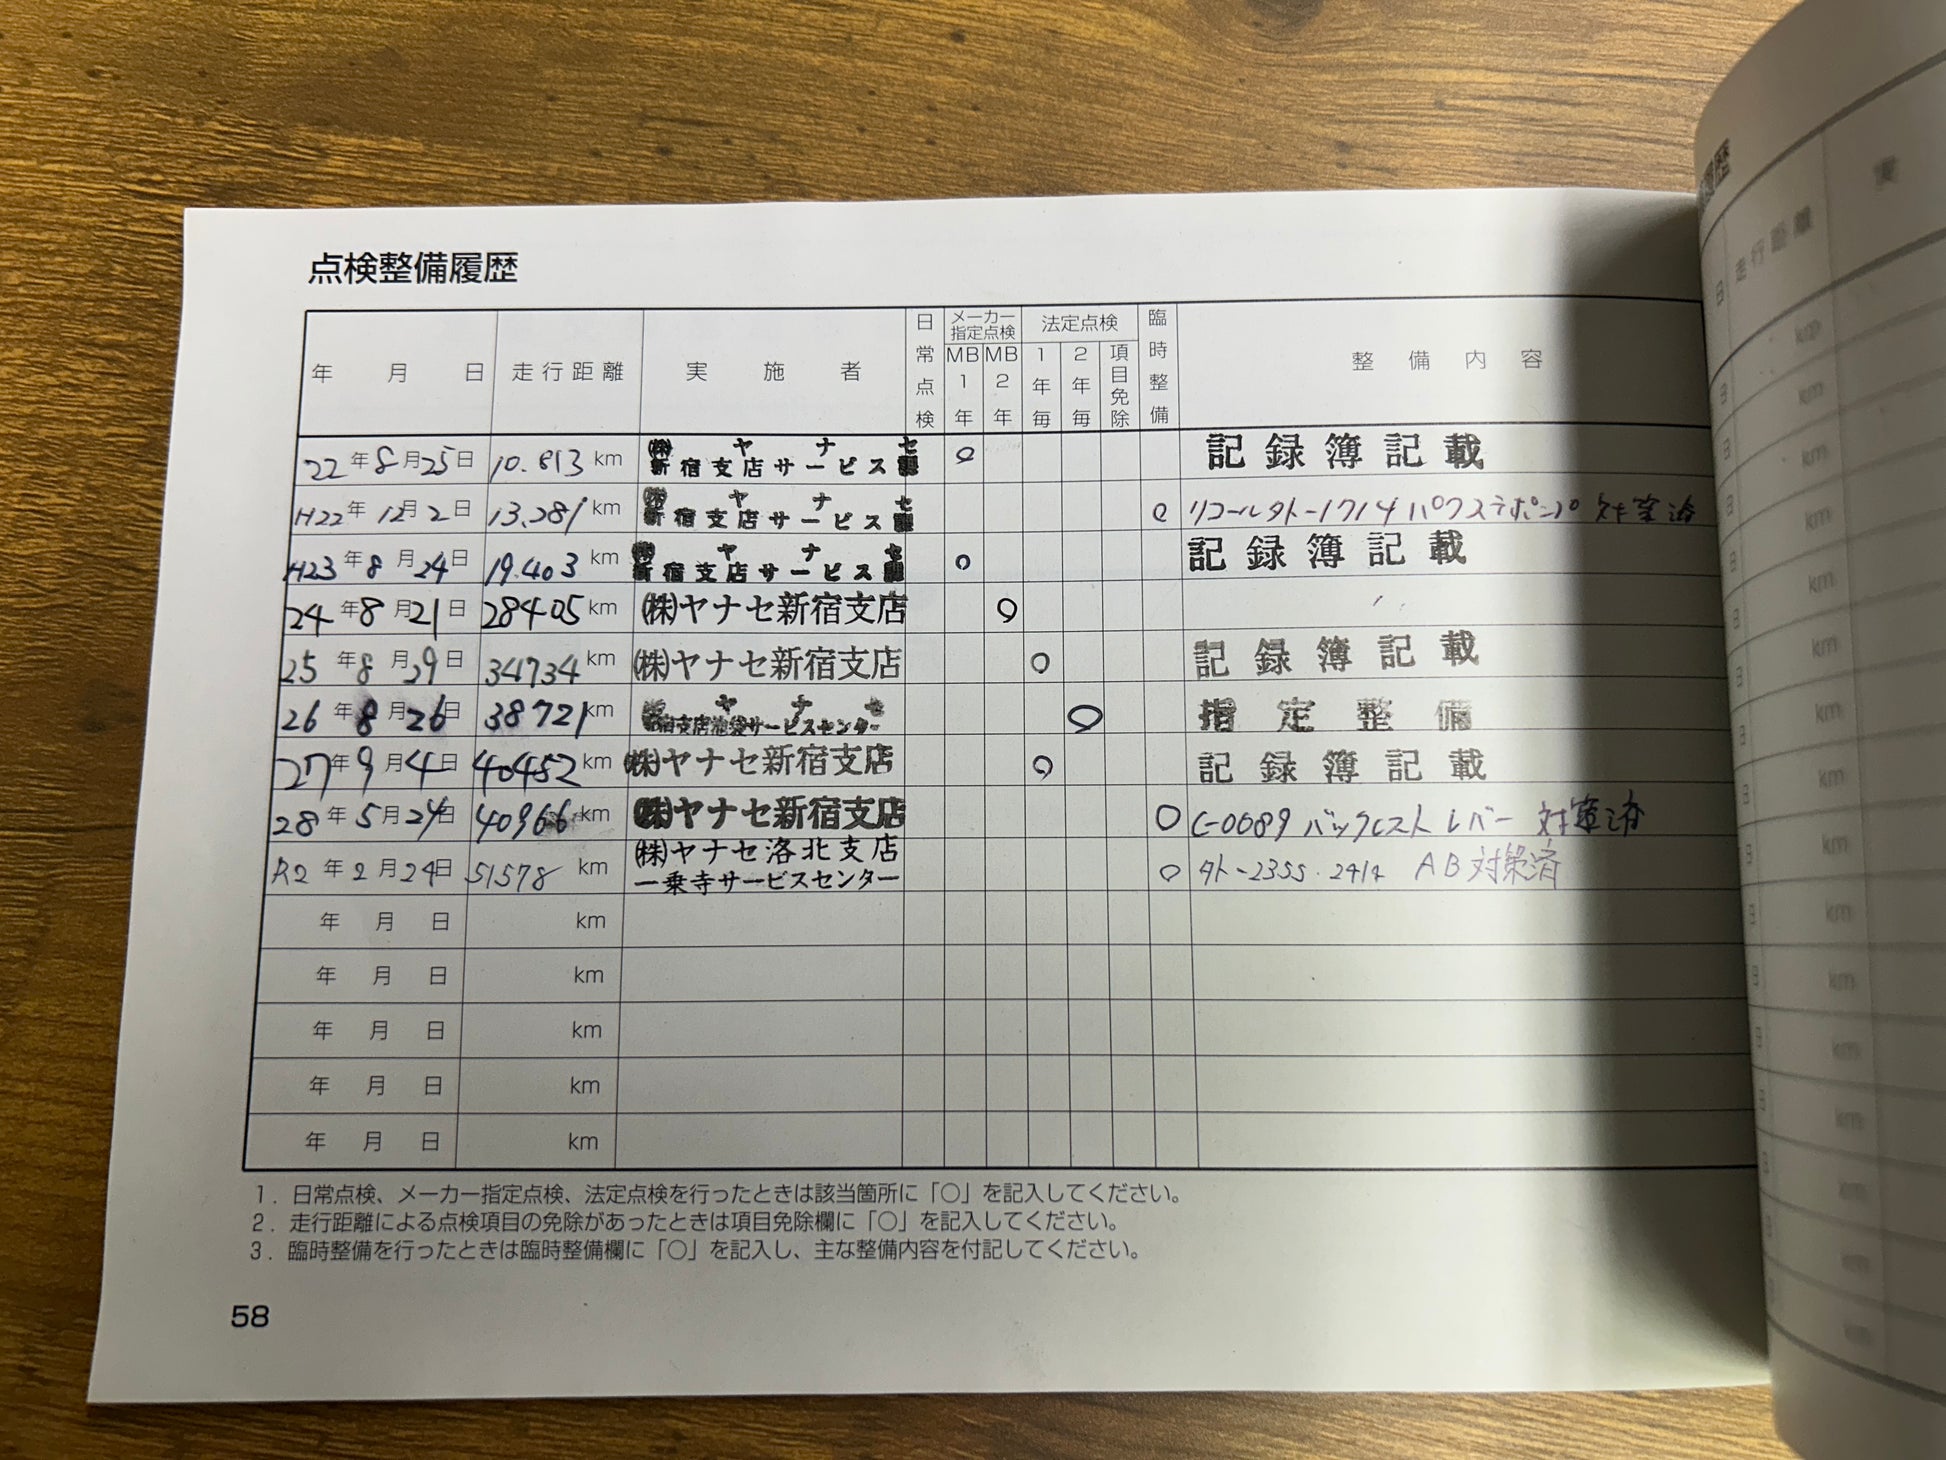 点検整備履歴
年 月 日 走行距離 実施者 日常点検 メーカー指定点検 MB1年 MB2年 法定点検 1年毎 2年毎 項目免除 臨時整備 整備内容
22年8月25日 10.813km ㈱ヤナセ 新宿支店サービス課 ○ 記録簿記載
H22年12月2日 13.281km ㈱ヤナセ 新宿支店サービス課 ○ リコール外-1714 パワステポンプ 対策済
H23年8月24日 19.403km ㈱ヤナセ 新宿支店サービス課 ○ 記録簿記載
24年8月21日 28405km ㈱ヤナセ新宿支店 ○
25年8月29日 34734km ㈱ヤナセ新宿支店 ○ 記録簿記載
26年8月26日 38721km ヤナセ 新宿支店池袋サービスセンター ○ 指定整備
27年9月4日 40452km ㈱ヤナセ新宿支店 ○ 記録簿記載
28年5月24日 40966km ㈱ヤナセ新宿支店 ○ C-0089 バックレスト レバー 対策済
R2年2月24日 51578km ㈱ヤナセ洛北支店 一乗寺サービスセンター ○ 外-2355.2414 AB対策済
年 月 日 km
年 月 日 km
年 月 日 km
年 月 日 km
年 月 日 km
1. 日常点検、メーカー指定点検、法定点検を行ったときは該当箇所に「○」を記入してください。
2. 走行距離による点検項目の免除があったときは項目免除欄に「○」を記入してください。
3. 臨時整備を行ったときは臨時整備欄に「○」を記入し、主な整備内容を付記してください。
58
日 走行距離
km
km
km
km
km
km
km
km
km
km
km
km
km
km